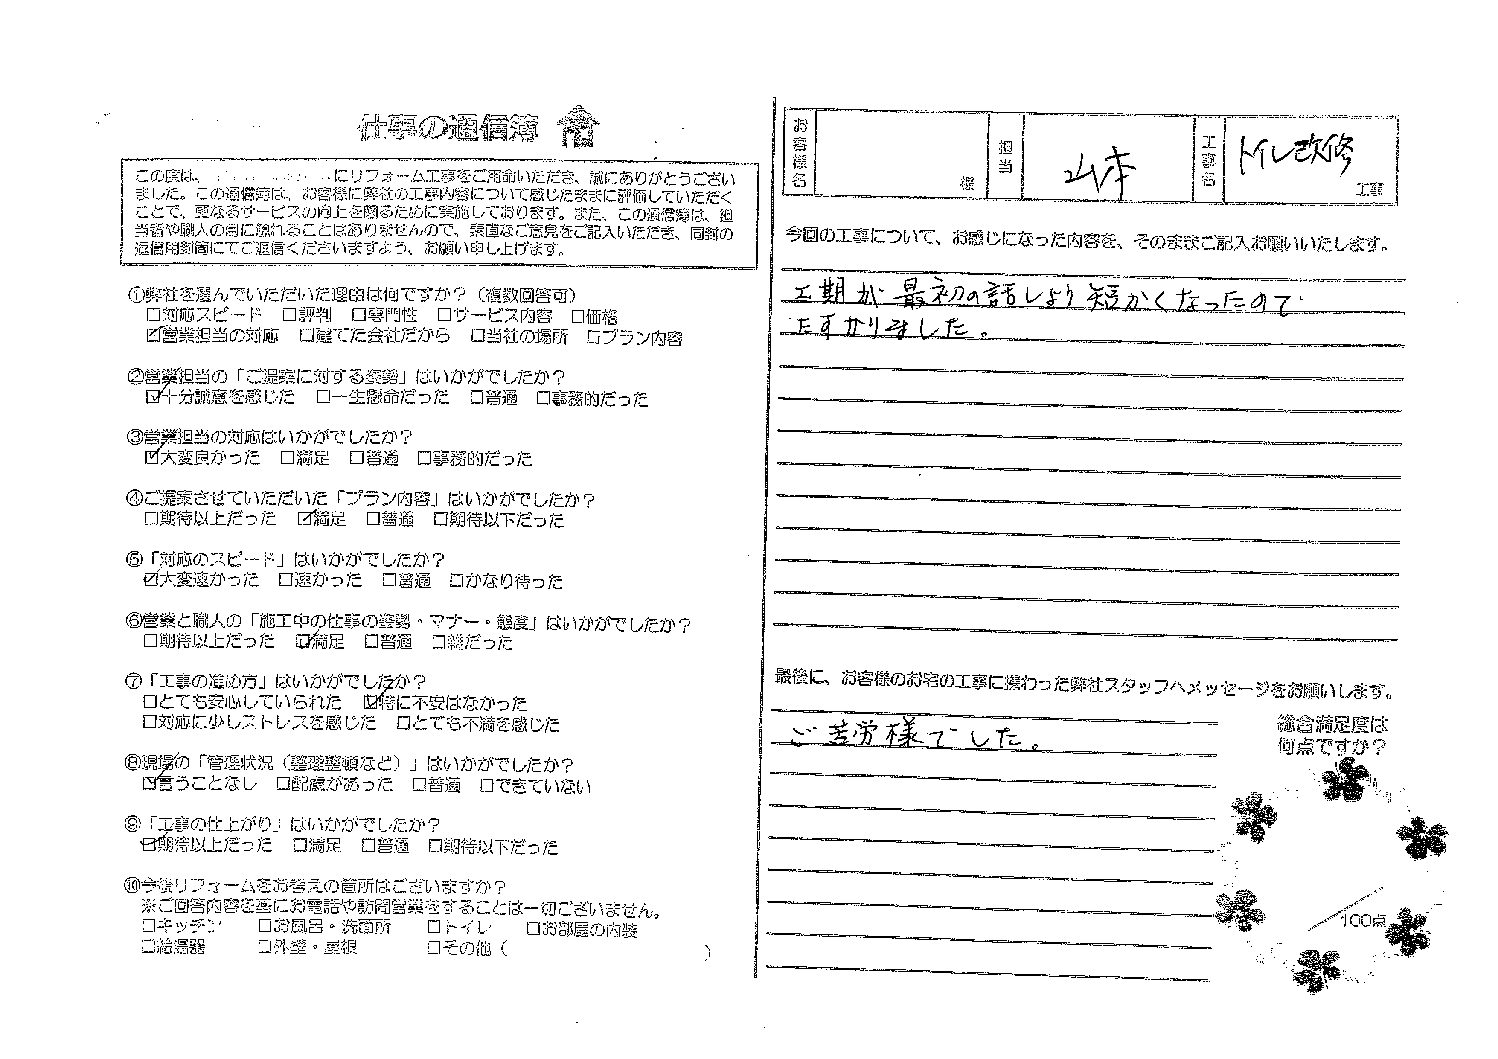 仕事の通信簿
この度は、にリフォーム工事をご用命いただき、誠にありがとうござい
ました。この通信簿は、お客様に弊社の工事内容について感じたままに評価していただく
ことで、更なるサービスの向上を図るために実施しております。また、この通信簿は、担
当者や職人の目に触れることはありませんので、素直なご意見をご記入いただき、同封の
返信用封筒にてご返信くださいますよう、お願い申し上げます。
①弊社を選んでいただいた理由は何ですか？（複数回答可）
□対応スピード □評判 □専門性 □サービス内容 □価格
☑営業担当の対応 □建てた会社だから □当社の場所 □プラン内容
②営業担当の「ご提案に対する姿勢」はいかがでしたか？
☑十分誠意を感じた □一生懸命だった □普通 □事務的だった
③営業担当の対応はいかがでしたか？
☑大変良かった □満足 □普通 □事務的だった
④ご提案させていただいた「プラン内容」はいかがでしたか？
□期待以上だった ☑満足 □普通 □期待以下だった
⑤「対応のスピード」はいかがでしたか？
☑大変速かった □速かった □普通 □かなり待った
⑥営業と職人の「施工中の仕事の姿勢・マナー・態度」はいかがでしたか？
□期待以上だった ☑満足 □普通 □だった
⑦「工事の進め方」はいかがでしたか？
□とても安心していられた ☑特に不安はなかった
□対応に少しストレスを感じた □とても不満を感じた
⑧現場の「管理状況（整理整頓など）」はいかがでしたか？
☑言うことなし □配慮があった □普通 □できていない
⑨「工事の仕上がり」はいかがでしたか？
☑期待以上だった □満足 □普通 □期待以下だった
⑩今後リフォームをお考えの箇所はございますか？
※ご回答内容を基にお電話や訪問営業をすることは一切ございません。
□キッチン □お風呂・洗面所 □トイレ □お部屋の内装
□給湯器 □外壁・屋根 □その他（ ）
お客様名 様 担当 山本 工事名 トイレ改修 工事
今回の工事について、お感じになった内容を、そのままご記入お願いいたします。
工期が最初の話しより短かくなったので
たすかりました。
最後に、お客様のお宅の工事に携わった弊社スタッフへメッセージをお願いします。
ご苦労様でした。
総合満足度は
何点ですか？
100点